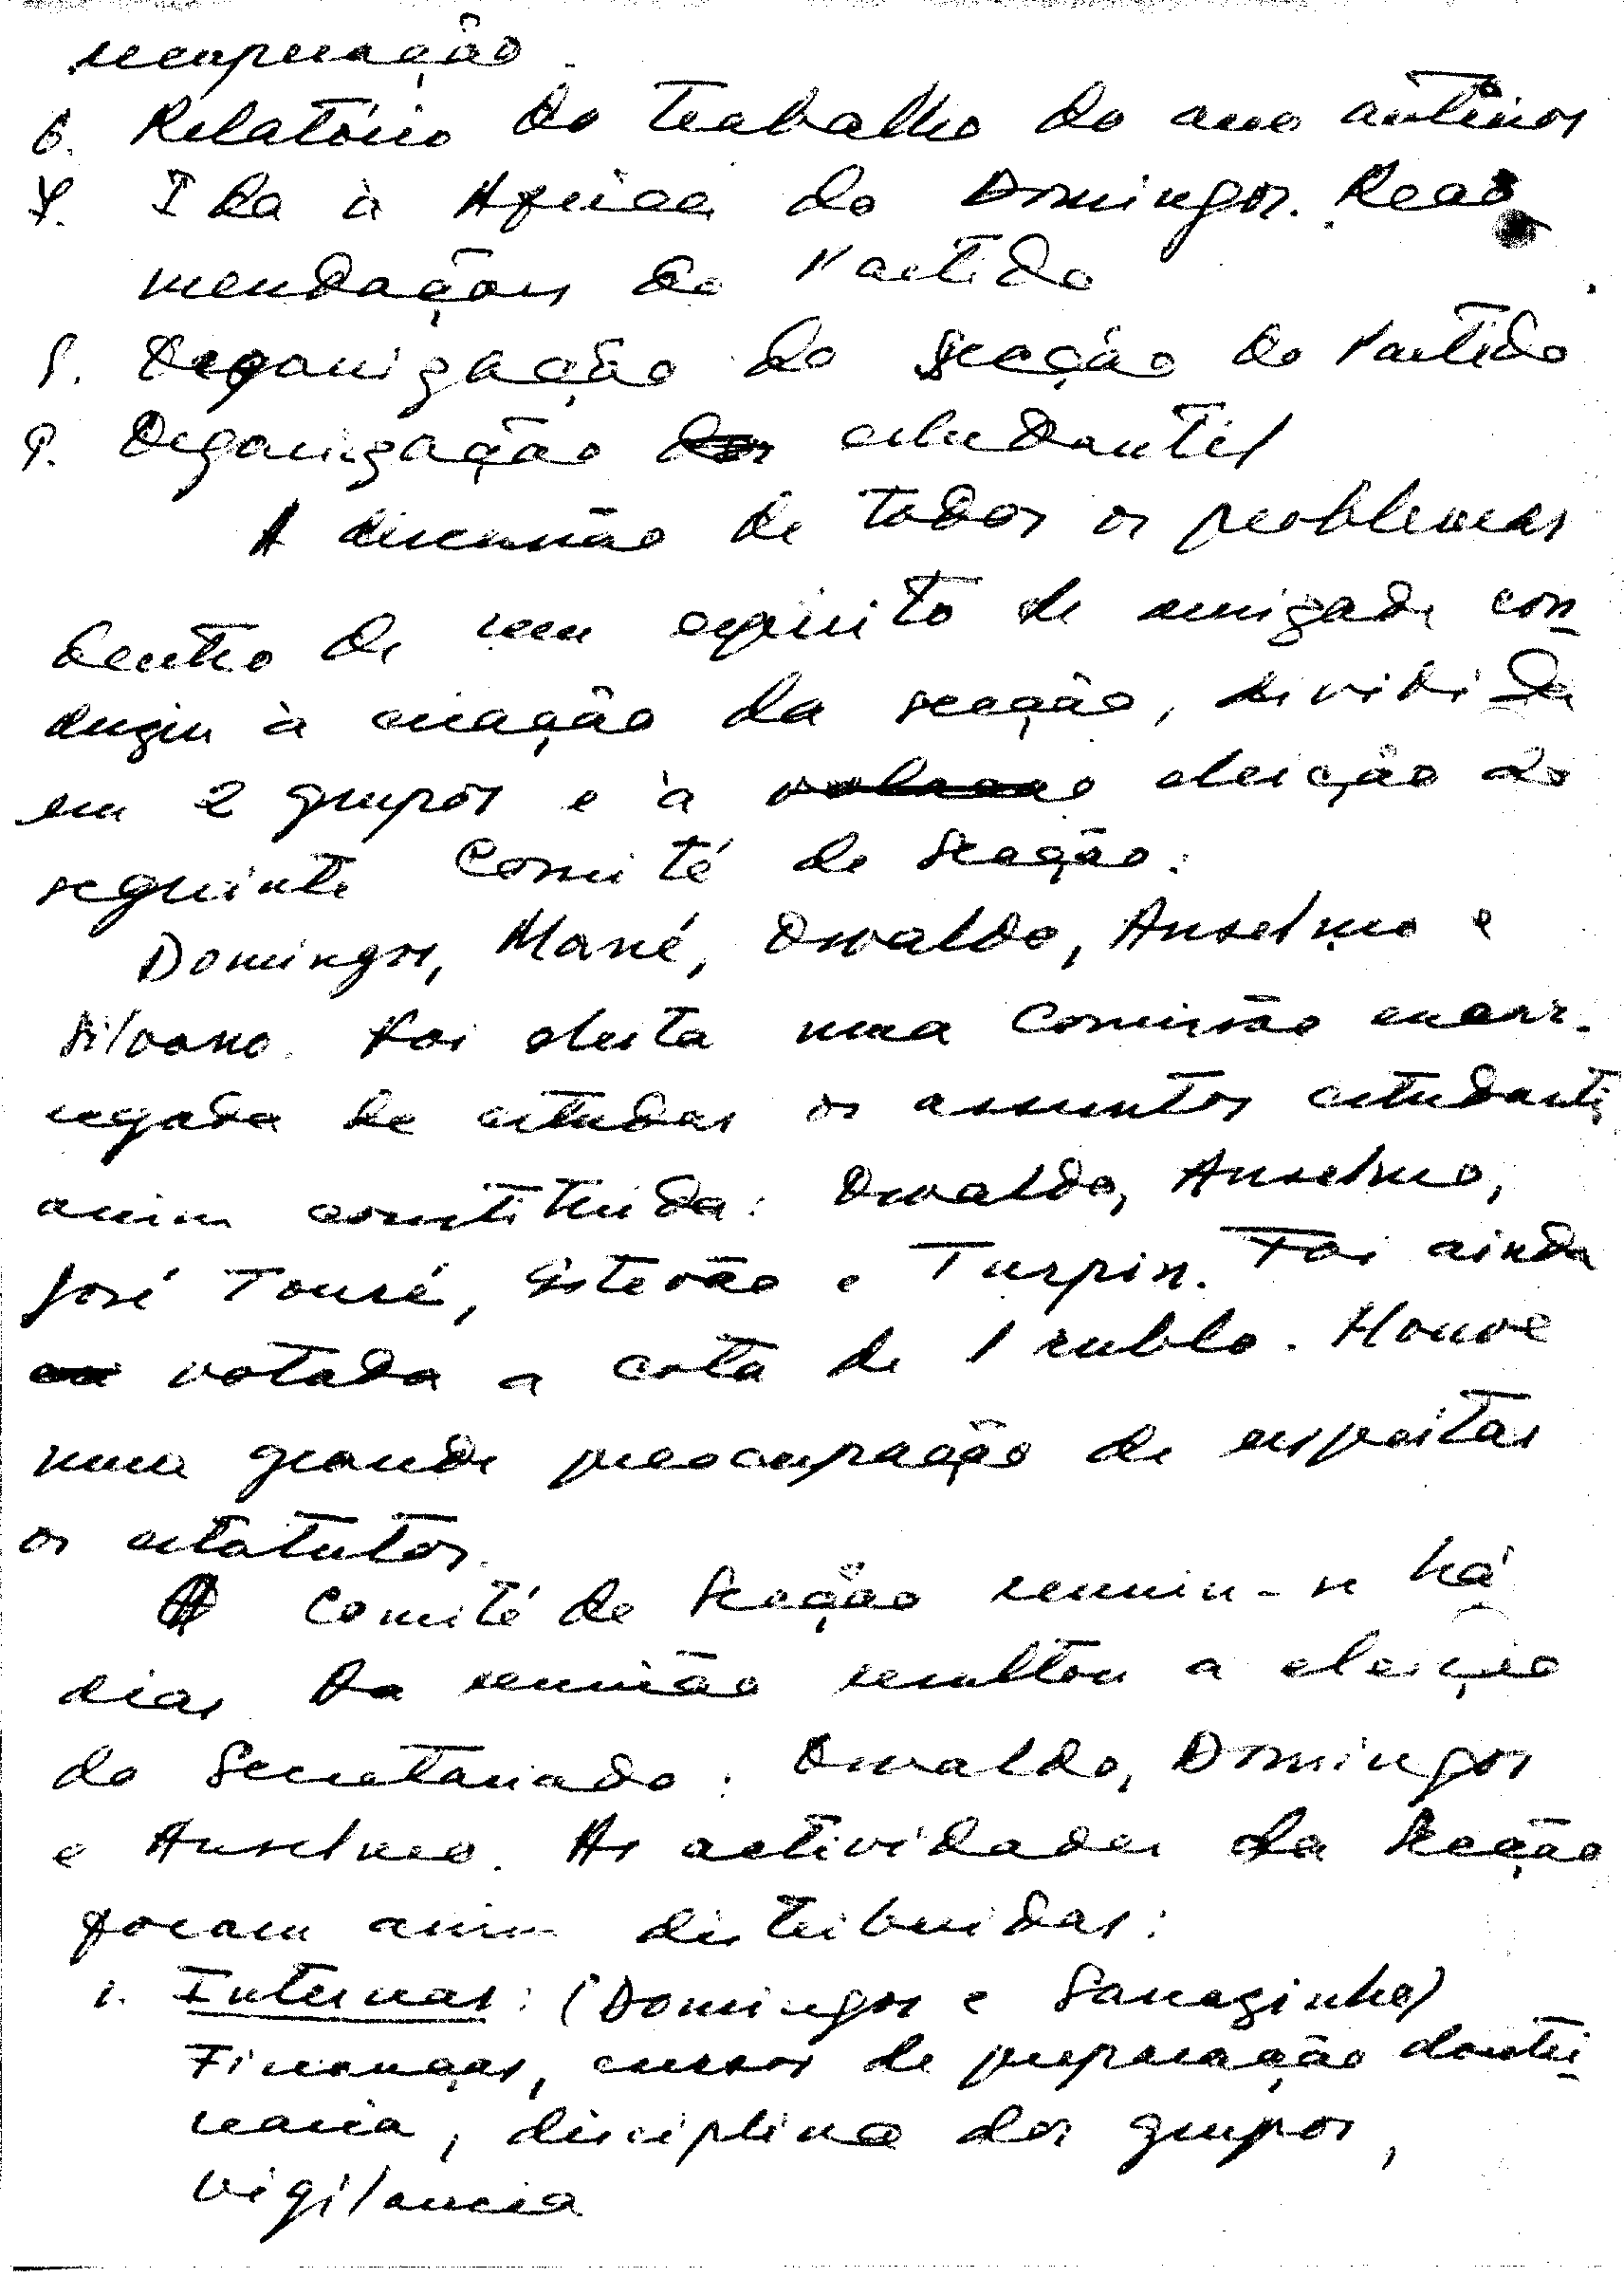 recuperação.
6. Relatório do trabalho do ano anterior
7. Ida à África do Domingos. Reco
mendações do Partido
8. Organização da secção do Partido
9. Organização estudantil
A discussão de todos os problemas
dentro de um espírito de amizade con-
duziu à criação da secção, dividida
em 2 grupos e à eleição do
seguinte Comité de Secção:
Domingos, Mané, Osvaldo, Anselmo e
Silvano. Foi eleita uma comissão encar-
regada de estudar os assuntos estudanti
assim constituída: Osvaldo, Anselmo,
José Touré, Estevão e Turpin. Foi ainda
votada a cota de 1 rublo. Houve
uma grande preocupação de respeitar
os estatutos.
O Comité de Secção reuniu-se há
dias. Da reunião resultou a eleição
do Secretariado: Osvaldo, Domingos
e Anselmo. As actividades da Secção
foram assim distribuidas:
1. Internas: (Domingos e
Finanças, cursos de preparação doutri-
nária, disciplina dos grupos,
vigilancia